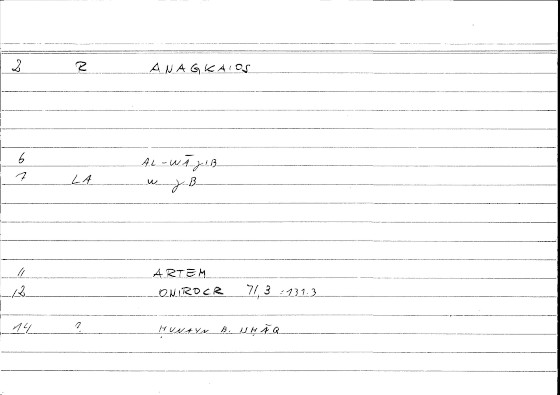 2 R ANAGKAIOS
6 AL-WĀJIB
7 LA W J B
11 ARTEM
12 ONIROCR 71,3 =131.3
14 ? ḤUNAYN B. ISḤĀQ